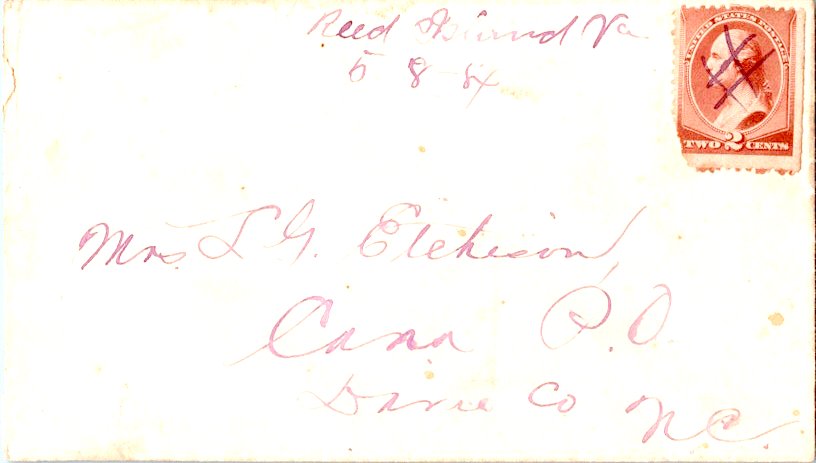 Reed Island Va
5 8 84
UNITED STATES POSTAGE
TWO 2 CENTS
Mrs. L G. Etchison,
Cana P.O.
Davie Co N.C.